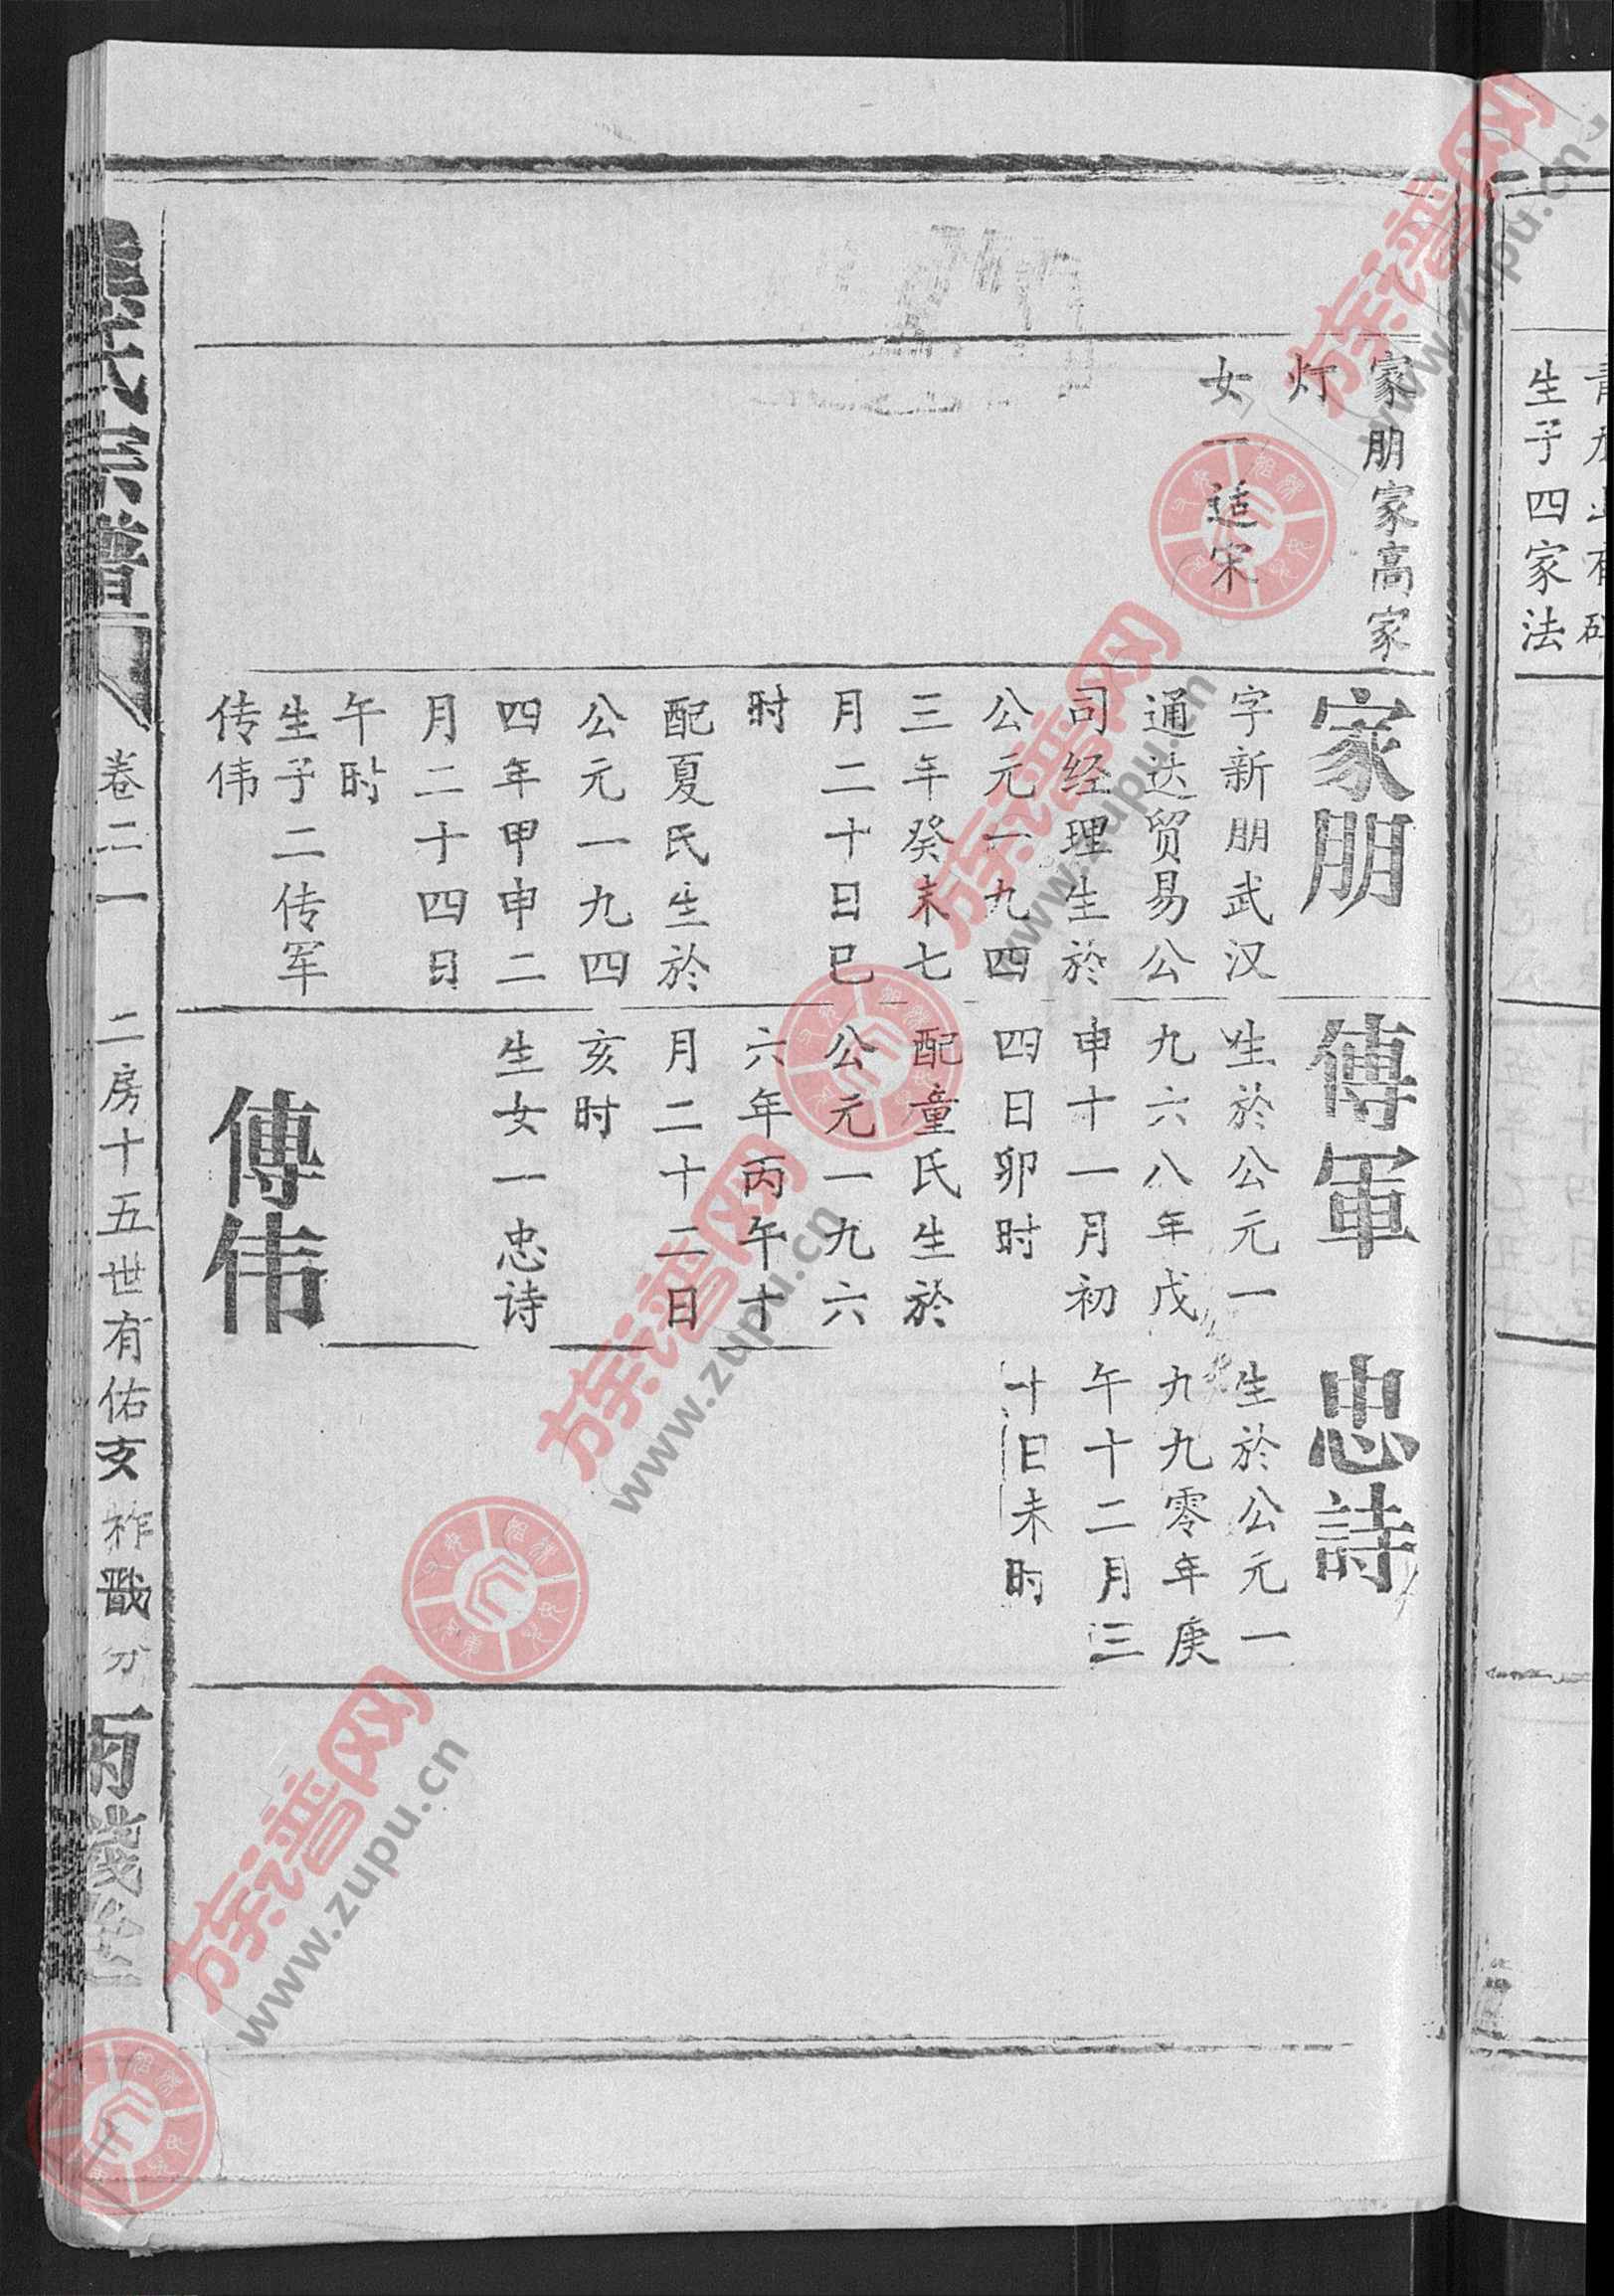 生子四家法
家朋家高家
灯
女一适宋
家朋
字新朋武汉
通达贸易公
司经理生於
公元一九四
三年癸末七
月二十日巳
时
配夏氏生於
公元一九四
四年甲申二
月二十四日
午时
生子二传军
传伟
傳軍
生於公元一
九六八年戊
申十一月初
四日卯时
配童氏生於
公元一九六
六年丙午十
月二十二日
亥时
生女一忠诗
傳伟
忠詩
生於公元一
九九零年庚
午十二月三
十日未时
氏宗譜
卷二一
二房十五世有佑支祚戬分
族谱网
www.zupu.cn
族谱网
www.zupu.cn
族谱网
www.zupu.cn
族谱网
www.zupu.cn